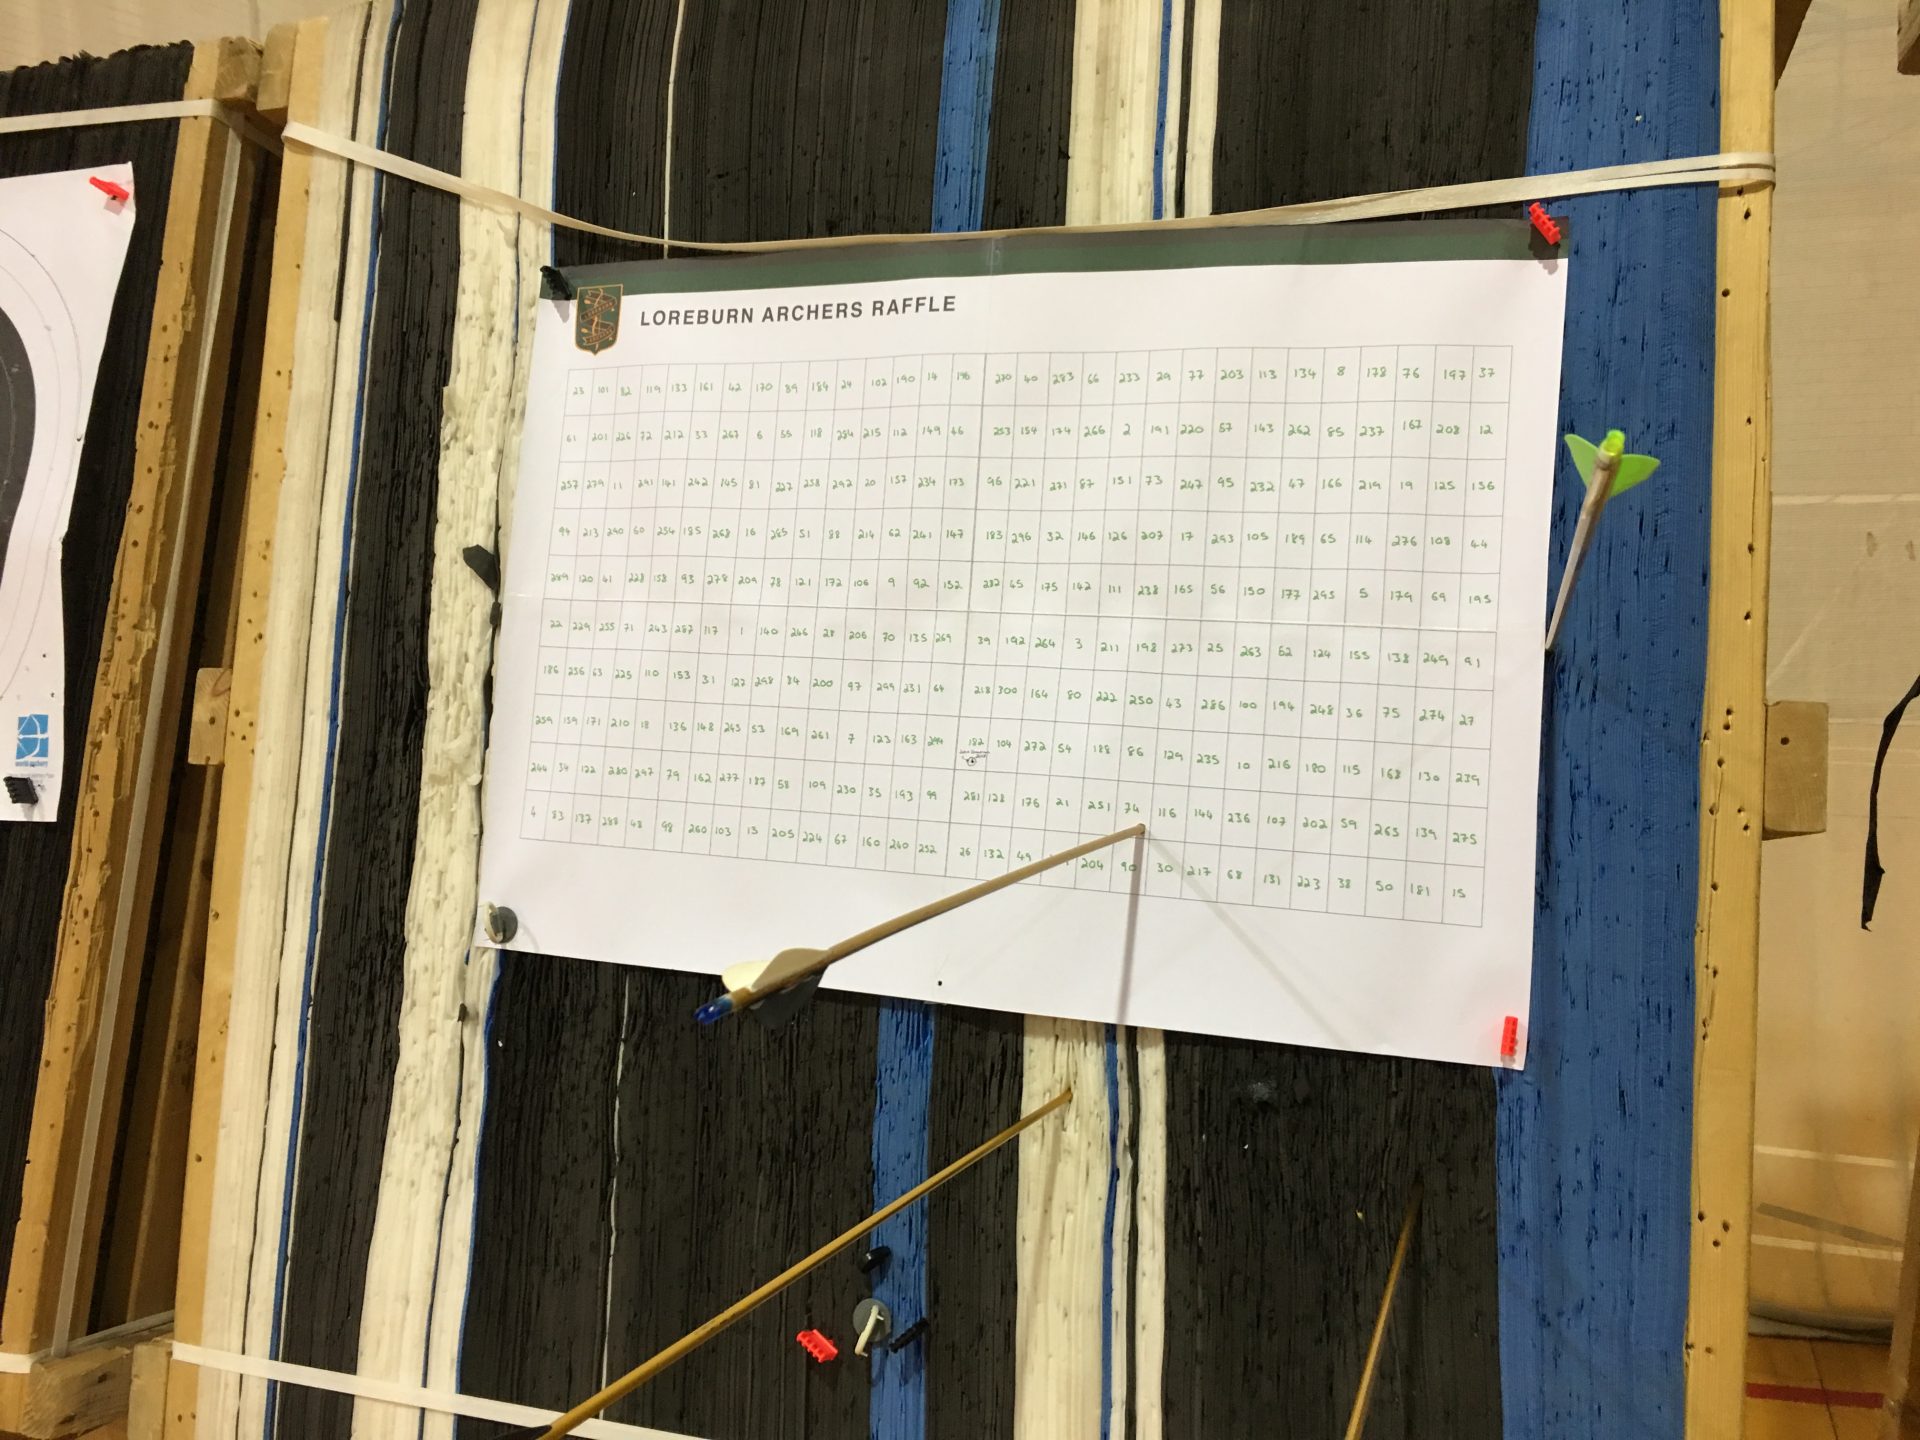 LOREBURN ARCHERS RAFFLE
23 101 82 119 133 161 42 170 89 184 24 102 190 14 196 270 40 283 66 233 29 77 203 113 134 8 178 76 197 37
61 201 226 72 212 33 267 6 55 118 284 215 112 149 46 253 154 174 266 2 191 220 57 143 262 85 237 167 208 12
257 279 11 291 141 242 145 81 227 258 292 20 157 234 173 96 221 271 87 151 73 247 95 232 47 166 219 19 125 156
94 213 290 60 254 185 268 16 285 51 88 214 62 241 147 183 296 32 146 126 207 17 293 105 189 65 114 276 108 44
289 120 41 228 158 93 278 209 78 121 172 106 9 92 152 282 45 175 142 111 238 165 56 150 177 295 5 179 69 195
22 229 255 71 243 287 117 1 140 246 28 206 70 135 269 39 192 264 3 211 198 273 25 263 52 124 155 138 249 91
186 256 63 225 110 153 31 127 298 84 200 97 299 231 64 218 300 164 80 222 250 43 286 100 194 248 36 75 274 27
259 159 171 210 18 136 148 245 53 169 261 7 123 163 294 182 104 272 54 188 86 129 235 10 216 180 115 168 130 239
244 34 122 280 297 79 162 277 187 58 109 230 35 193 99 281 128 176 21 251 74 116 144 236 107 202 59 265 139 275
4 83 137 288 48 98 260 103 13 205 224 67 160 240 252 26 132 49 204 90 30 217 68 131 223 38 50 181 15
world archery